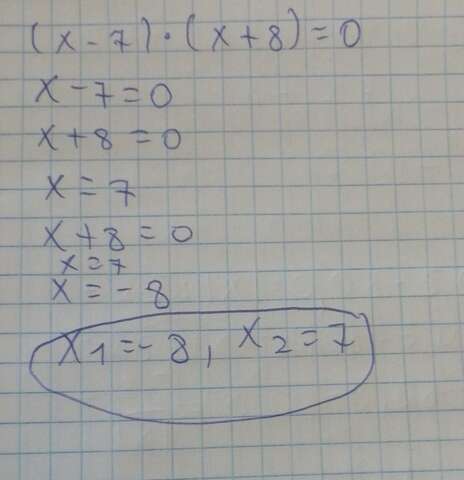 (x-7)·(x+8)=0
x-7=0
x+8=0
x=7
x+8=0
x=7
x=-8
x1=-8, x2=7